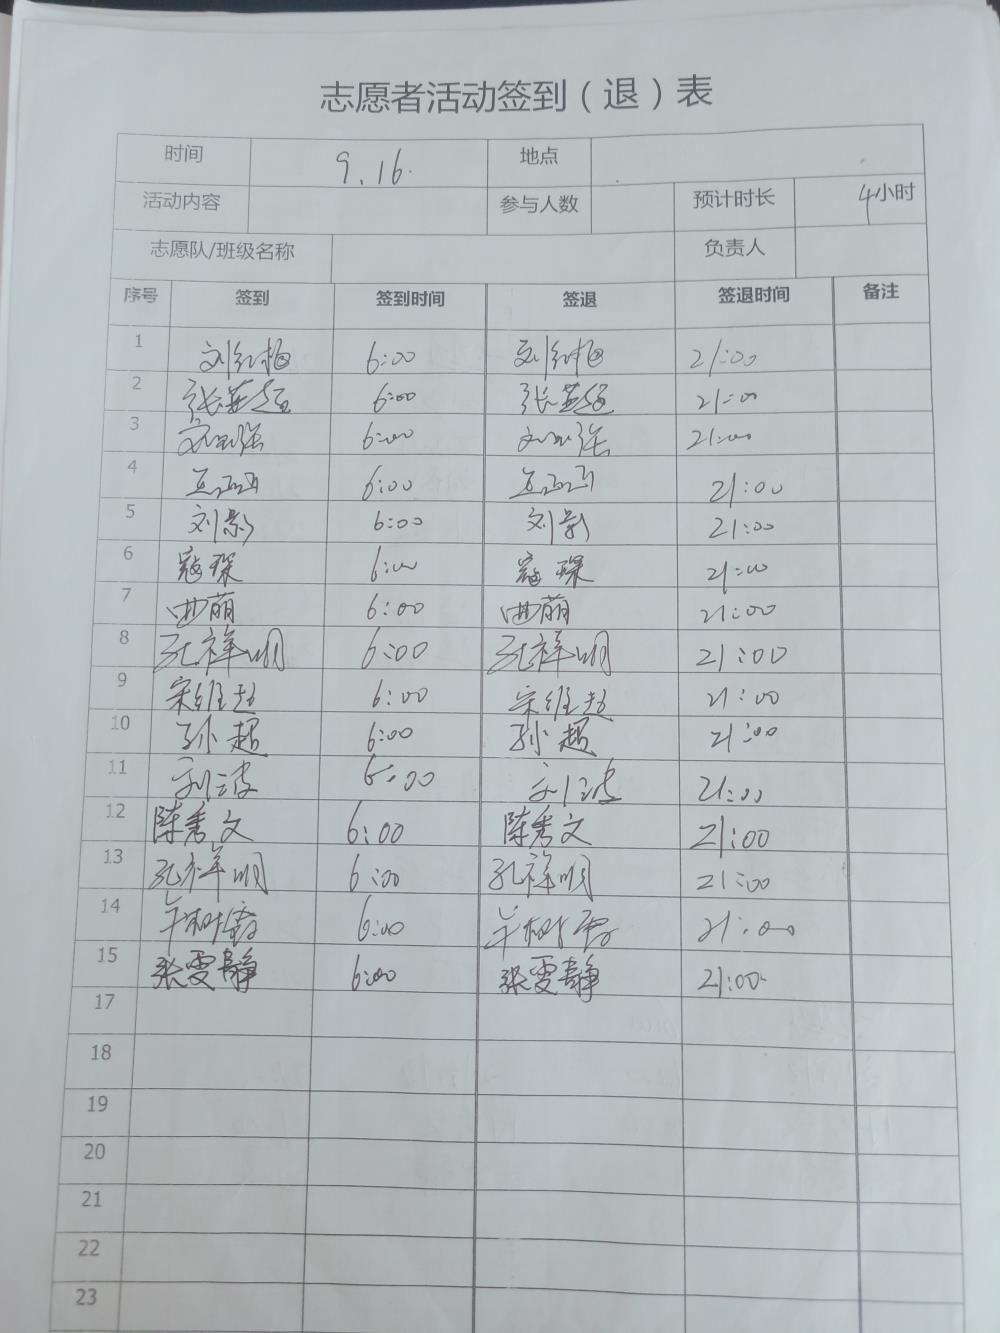 志愿者活动签到（退）表
时间 9.16. 地点
活动内容 参与人数 预计时长 4小时
志愿队/班级名称 负责人
序号 签到 签到时间 签退 签退时间 备注
1 刘红梅 6:00 刘红梅 21:00
2 6:00 21:00
3 6:00 21:00
4 6:00 21:00
5 刘影 6:00 刘影 21:00
6 寇琛 6:00 寇琛 21:00
7 曲萌 6:00 曲萌 21:00
8 孔祥明 6:00 孔祥明 21:00
9 宋维赵 6:00 宋维赵 21:00
10 孙超 6:00 孙超 21:00
11 刘波 6:00 刘波 21:00
12 陈秀文 6:00 陈秀文 21:00
13 孔祥明 6:00 孔祥明 21:00
14 6:00 21:00
15 张雯静 6:00 张雯静 21:00
17
18
19
20
21
22
23